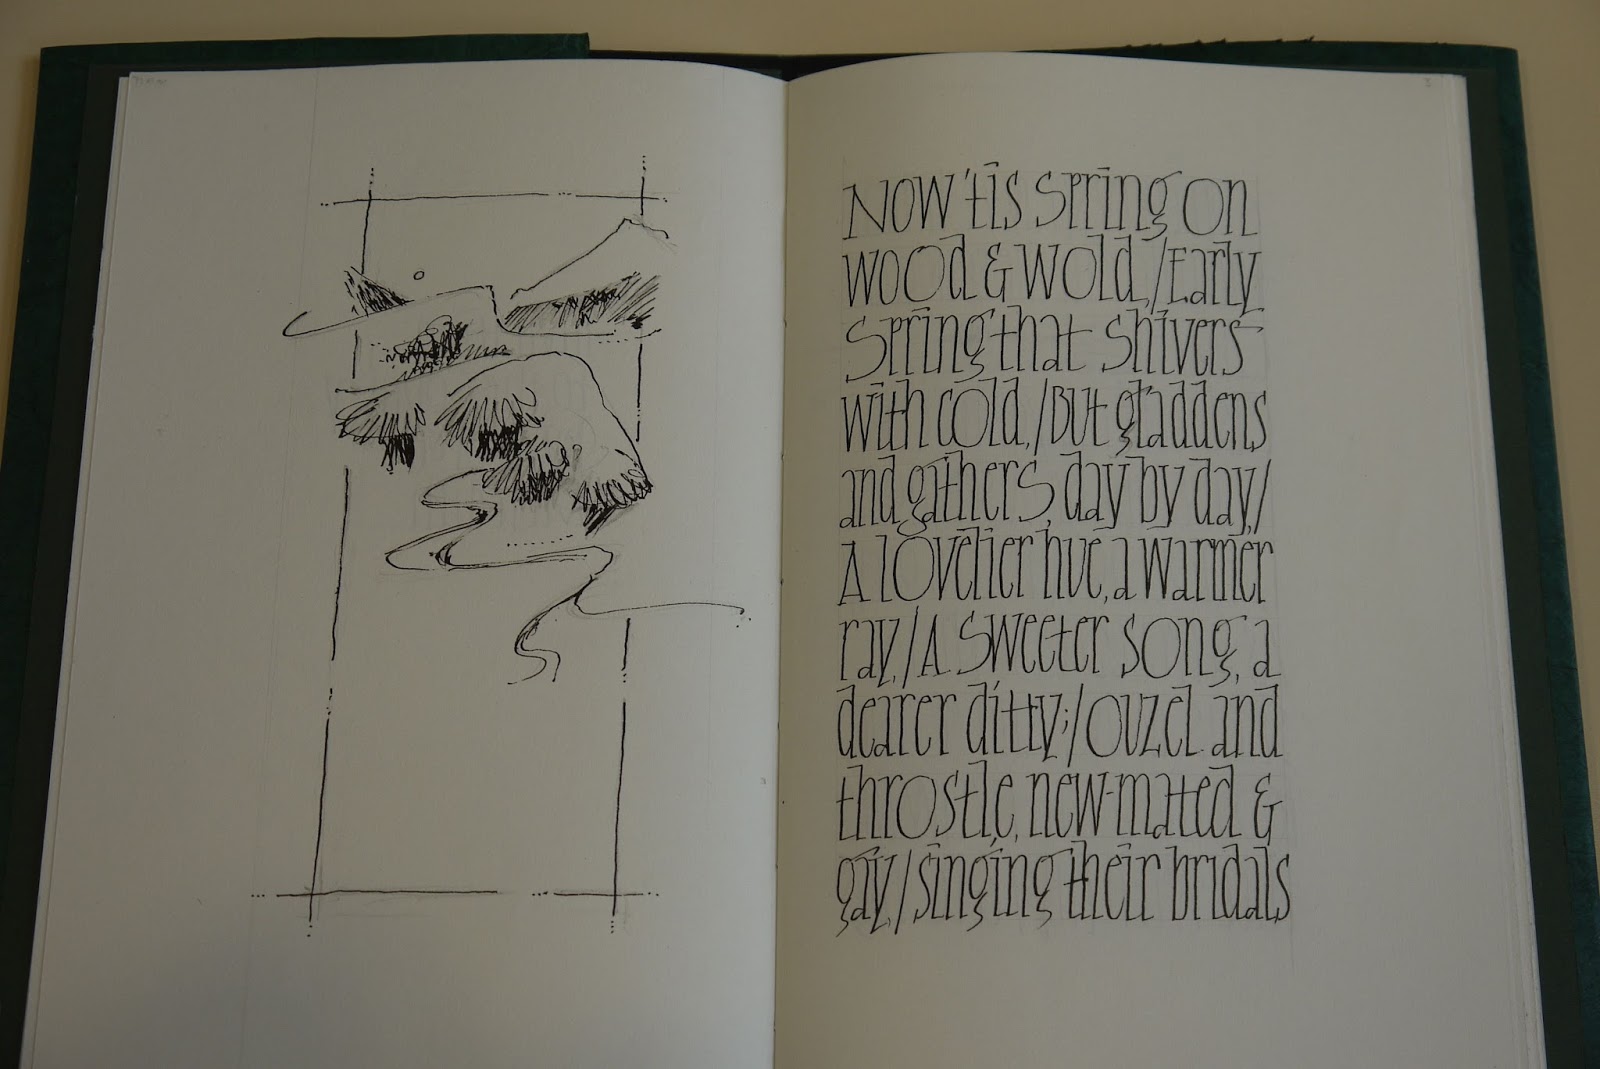 Now 'tis Spring on
wood & wold,/Early
Spring that shivers
with cold,/But gladdens
and gathers, day by day,/
A lovelier hue, a warmer
ray,/A sweeter song, a
dearer ditty;/Ouzel and
throstle, new-mated &
gay,/singing their bridals